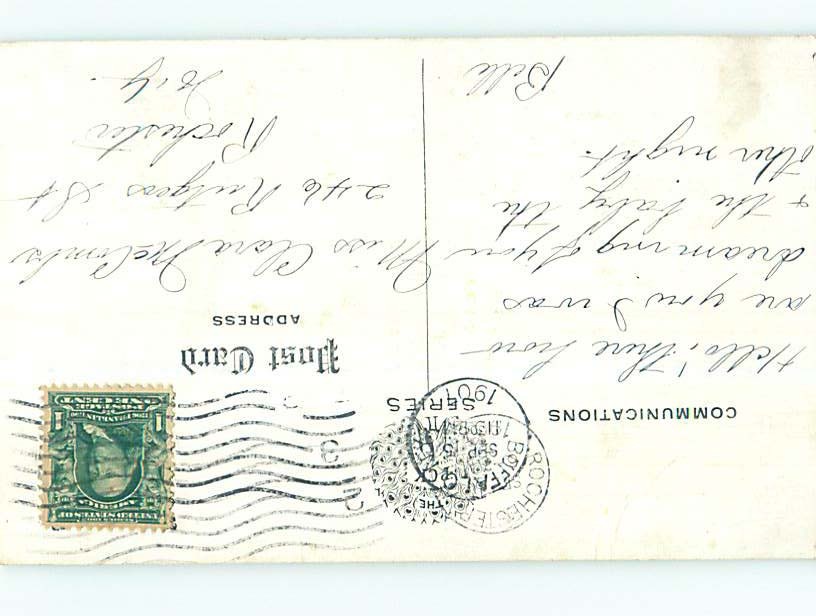 COMMUNICATIONS
Hello! There how
are you I was
dreaming of you
+ the baby the
other night.
Bill
THE
SERIES
ROCHESTER
BUFFALO
SEP 15
190
Post Card
ADDRESS
Miss Clara McCombs
246 Rutgers St
Rochester
UNITED STATES OF
AMERICA
1 1
ONE CENT